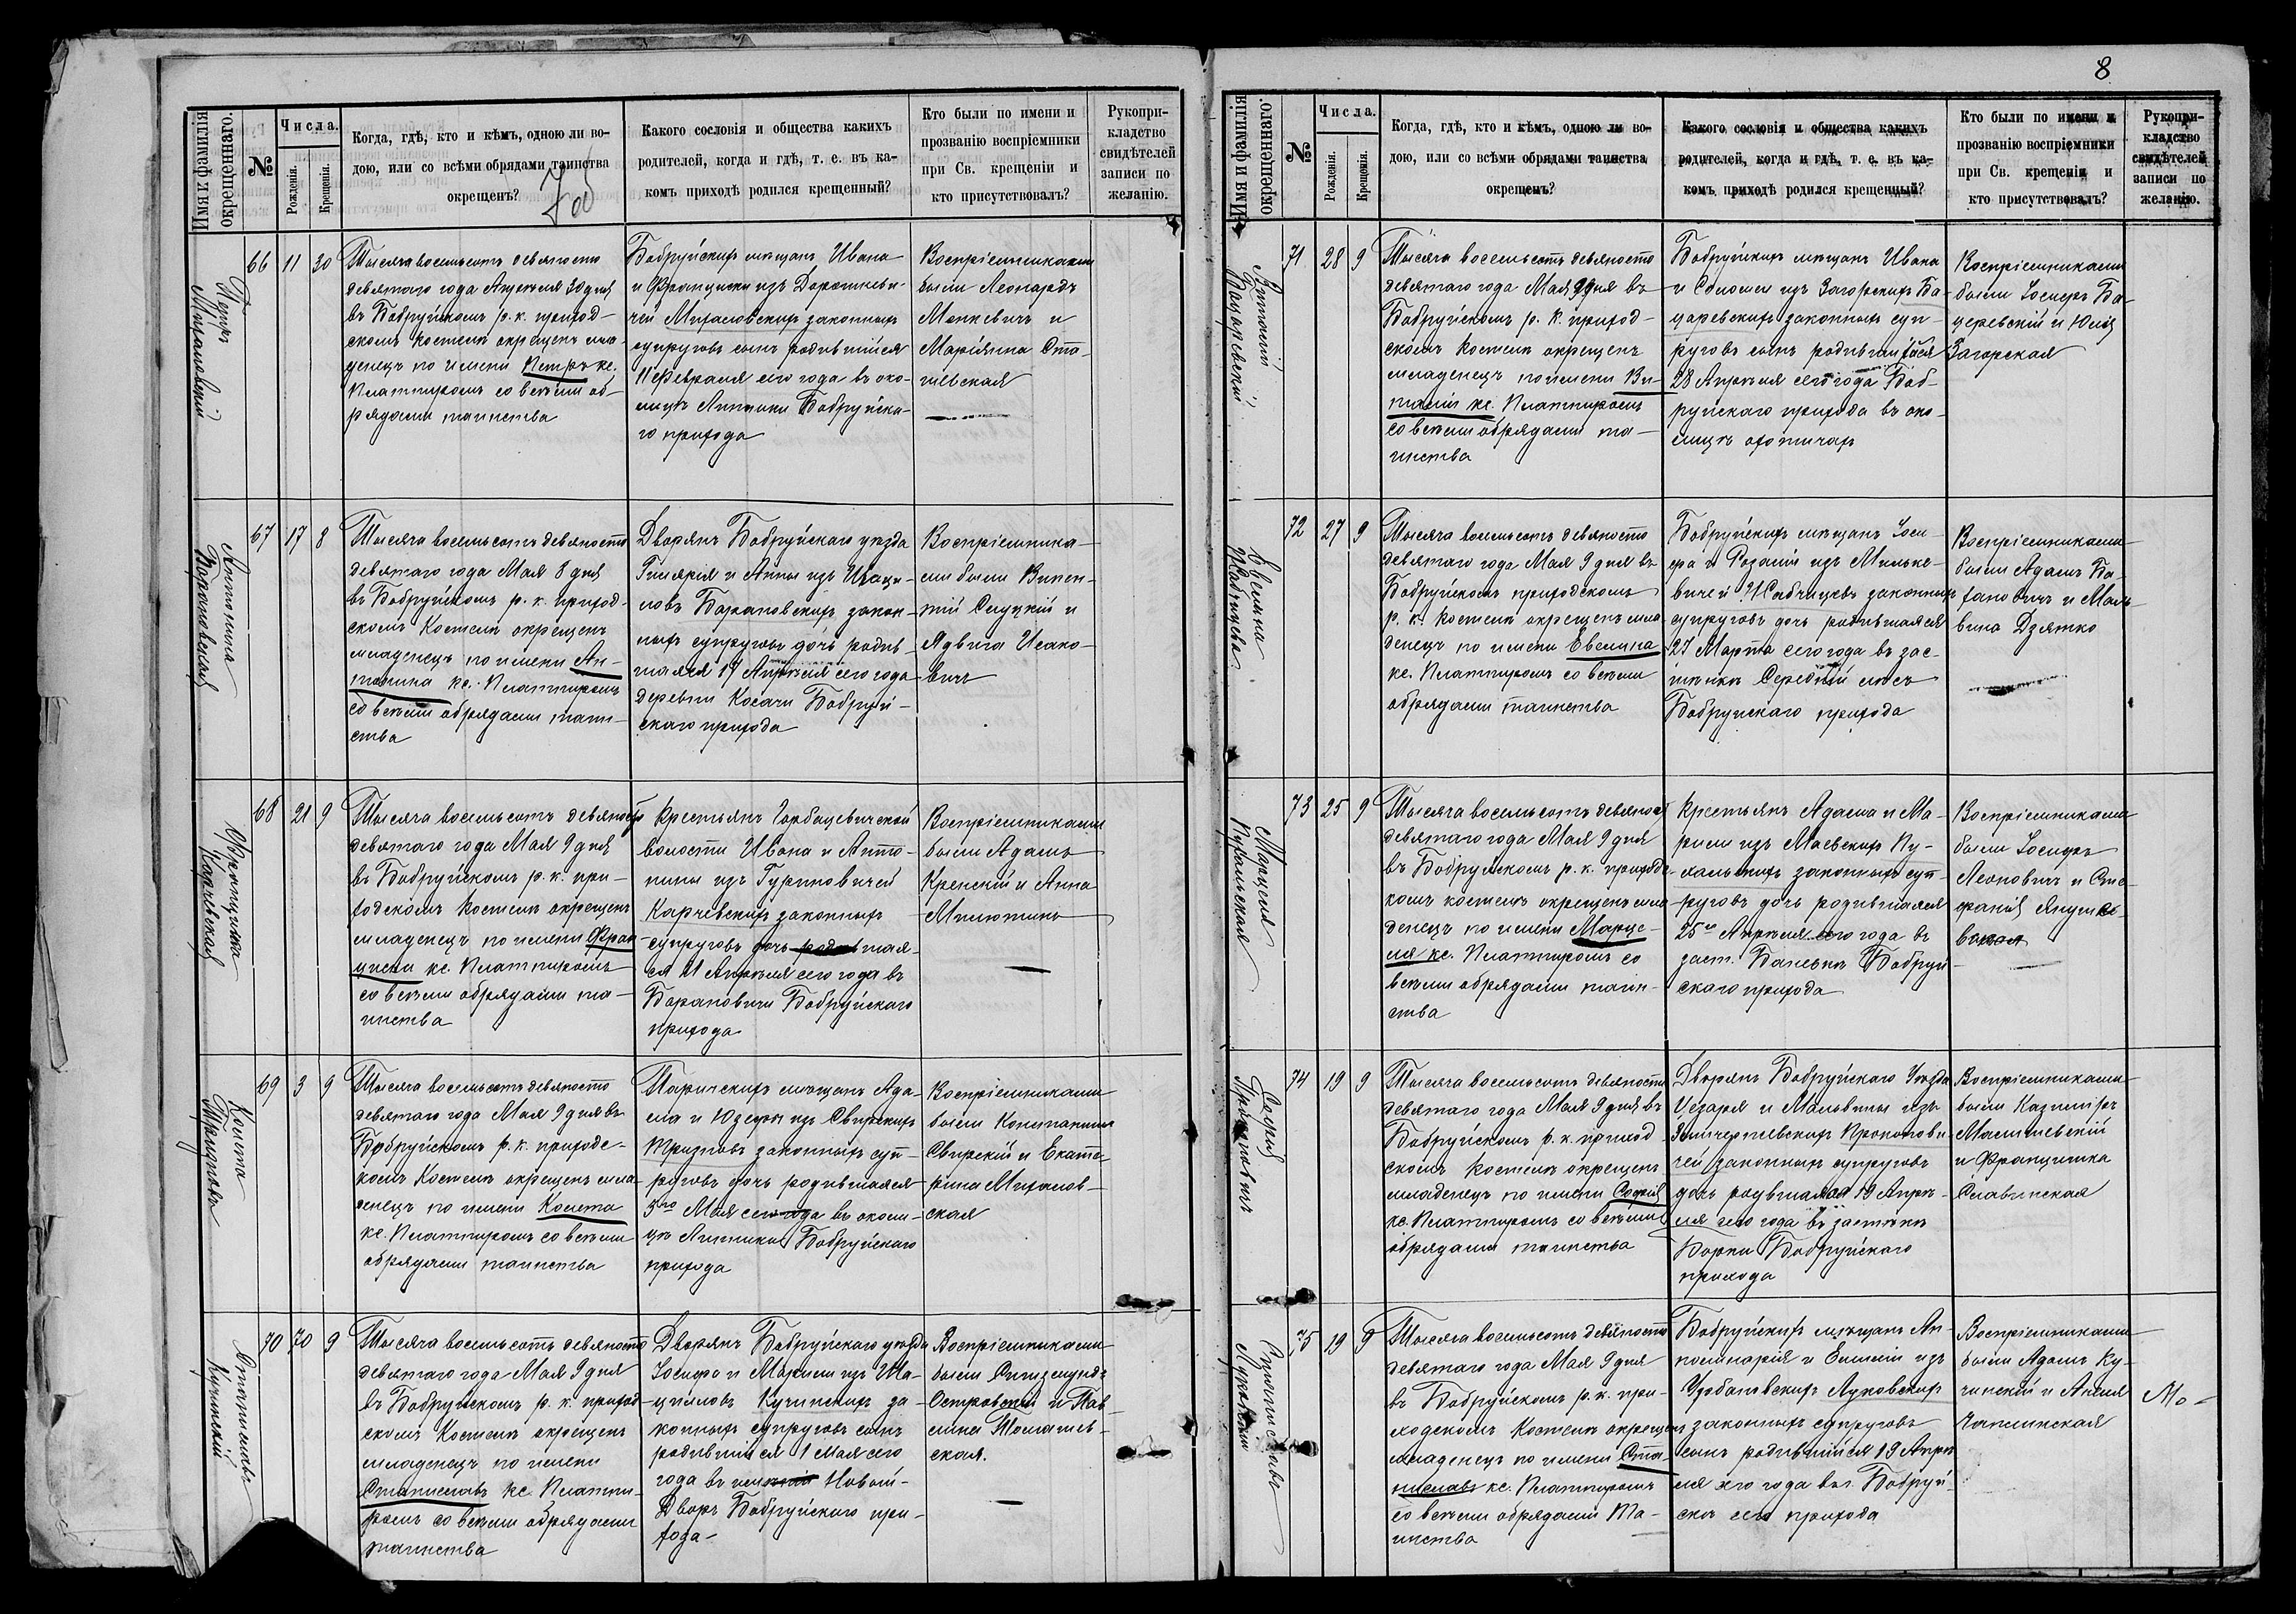 Имя и фамилія окрещеннаго.
№
Числа.
Рожденія.
Крещенія.
Когда, гдѣ, кто и кѣмъ, одною ли во-
дою, или со всѣми обрядами таинства
окрещенъ?
Какого сословія и общества какихъ
родителей, когда и гдѣ, т. е. въ ка-
комъ приходѣ родился крещенный?
Кто были по имени и
прозванію воспріемники
при Св. крещеніи и
кто присутствовалъ?
Рукопри-
кладство
свидѣтелей
записи по
желанію.
Петръ
66 11 30
Тысяча восемьсотъ девяносто
девятаго года Апрѣля 30 дня
въ Бобруйскомъ р. к. приход-
скомъ костелѣ окрещенъ мла-
денецъ по имени Петръ кс.
Платтиромъ со всѣми об-
рядами таинства
Бобруйскихъ мѣщанъ Ивана
и Францишки изъ Дорошеви-
чей Михаловскихъ законныхъ
супруговъ сынъ родившійся
11 февраля сего года въ око-
лицѣ Бобруйска-
го прихода
Воспріемниками
были Леонардъ
Монкевичъ и
Маріянна
Антонина
Барановская
67 17 8
Тысяча восемьсотъ девяносто
девятаго года Мая 8 дня
въ Бобруйскомъ р. к. приход-
скомъ Костелѣ окрещенъ
младенецъ по имени Ан-
тонина кс. Платтиромъ
со всѣми обрядами таин-
ства
Дворянъ Бобруйскаго уѣзда
Гилярія и Анны изъ
Барановскихъ закон-
ныхъ супруговъ дочь родив-
шаяся 17 Апрѣля сего года
деревни Косачи Бобруй-
скаго прихода
Воспріемника-
ми были Викен-
тій Слуцкій и
Ядвига Исако-
вичъ
Францишка
Карчевская
68 21 9
Тысяча восемьсотъ девяносто
девятаго года Мая 9 дня
въ Бобруйскомъ р. к. при-
ходскомъ костелѣ окрещенъ
младенецъ по имени Фран-
циска кс. Платтиромъ
со всѣми обрядами та-
инства
Крестьянъ Горбацевичской
волости Ивана и Анто-
нины изъ Гуриновичей
Карчевскихъ законныхъ
супруговъ дочь родившая-
ся 21 Апрѣля сего года въ
Барановичи Бобруйскаго
прихода
Воспріемниками
были Адамъ
Кренскій и Анна
Милютинъ
Колета
69 3 9
Тысяча восемьсотъ девяносто
девятаго года Мая 9 дня въ
Бобруйскомъ р. к. приходс-
комъ Костелѣ окрещенъ мла-
денецъ по имени Колета
кс. Платтиромъ со всѣми
обрядами таинства
Паричскихъ мѣщанъ Ада-
ма и Юзефы изъ Свирскихъ
законныхъ суп-
руговъ дочь родившаяся
3го Мая сего года въ околи-
цѣ Бобруйскаго
прихода
Воспріемниками
были
Свирскій и Екате-
рина Михалов-
ская
Станиславъ
Кучинскій
70 70 9
Тысяча восемьсотъ девяносто
девятаго года Мая 9 дня
въ Бобруйскомъ р. к. приход-
скомъ Костелѣ окрещенъ
младенецъ по имени
Станиславъ кс. Платти-
ромъ со всѣми обрядами
таинства
Дворянъ Бобруйскаго уѣзда
Іосифа и Маріи изъ
Кучинскихъ за-
конныхъ супруговъ сынъ
родившійся 1 Мая сего
года въ имѣніи Новый-
Дворъ Бобруйскаго при-
хода
Воспріемниками
были Сигизмундъ
Островскій и Пав-
лина Томашев-
ская.
8
Имя и фамилія окрещеннаго.
№
Числа.
Рожденія.
Крещенія.
Когда, гдѣ, кто и кѣмъ, одною ли во-
дою, или со всѣми обрядами таинства
окрещенъ?
Какого сословія и общества какихъ
родителей, когда и гдѣ, т. е. въ ка-
комъ приходѣ родился крещенный?
Кто были по имени и
прозванію воспріемники
при Св. крещеніи и
кто присутствовалъ?
Рукопри-
кладство
свидѣтелей
записи по
желанію.
Виталій
Бацаревскій
71 28 9
Тысяча восемьсотъ девяносто
девятаго года Мая 9 дня въ
Бобруйскомъ р. к. приход-
скомъ костелѣ окрещенъ
младенецъ по имени Ви-
талій кс. Платтиромъ
со всѣми обрядами та-
инства
Бобруйскихъ мѣщанъ Ивана
и Саломеи изъ Загорскихъ Ба-
царевскихъ законныхъ суп-
руговъ сынъ родившійся
28 Апрѣля сего года Боб-
руйскаго прихода въ око-
лицѣ
Воспріемниками
были Іосифъ Ба-
царевскій и Юлія
Загорская
Евелина
72 27 9
Тысяча восемьсотъ девяносто
девятаго года Мая 9 дня въ
Бобруйскомъ приходскомъ
р. к. костелѣ окрещенъ мла-
денецъ по имени Евелина
кс. Платтиромъ со всѣми
обрядами таинства
Бобруйскихъ мѣщанъ Іоси-
фа и Розаліи изъ Мильке-
вичей законныхъ
супруговъ дочь родившаяся
27 Марта сего года въ зас-
тѣнкѣ Середній лѣсъ
Бобруйскаго прихода
Воспріемниками
были Адамъ
и Маль-
вина Дзятко
Марцеля
Пухальская
73 25 9
Тысяча восемьсотъ девяносто
девятаго года Мая 9 дня
въ Бобруйскомъ р. к. приходс-
комъ костелѣ окрещенъ мла-
денецъ по имени Марце-
ля кс. Платтиромъ со
всѣми обрядами таин-
ства
Крестьянъ Адама и Ма-
ріи изъ Маевскихъ Пу-
хальскихъ законныхъ суп-
руговъ дочь родившаяся
25го Апрѣля сего года въ
заст. Бобруй-
скаго прихода
Воспріемниками
были Іосифъ
Леоновичъ и Сте-
фанія Янушке-
Софія
Прокоповичъ
74 19 9
Тысяча восемьсотъ девяносто
девятаго года Мая 9 дня въ
Бобруйскомъ р. к. приход-
скомъ костелѣ окрещенъ
младенецъ по имени Софія
кс. Платтиромъ со всѣми
обрядами таинства
Дворянъ Бобруйскаго Уѣзда
Цезаря и Мальвины изъ
Прокопови-
чей законныхъ супруговъ
дочь родившаяся 19 Апрѣ-
ля сего года въ застѣнкѣ
Борки Бобруйскаго
прихода
Воспріемниками
были Казимиръ
и Францишка
Славинская
Станиславъ
Луковскій
75 19 9
Тысяча восемьсотъ девяносто
девятаго года Мая 9 дня
въ Бобруйскомъ р. к. при-
ходскомъ Костелѣ окрещенъ
младенецъ по имени Ста-
ниславъ кс. Платтиромъ
со всѣми обрядами Та-
инства
Бобруйскихъ мѣщанъ Ап-
полинарія и Емиліи изъ
Урбановскихъ Луковскихъ
законныхъ супруговъ
сынъ родившійся 19 Апрѣ
ля сего года въ г. Бобруй-
скѣ сего прихода
Воспріемниками
были Адамъ Ку-
чинскій и Анеля